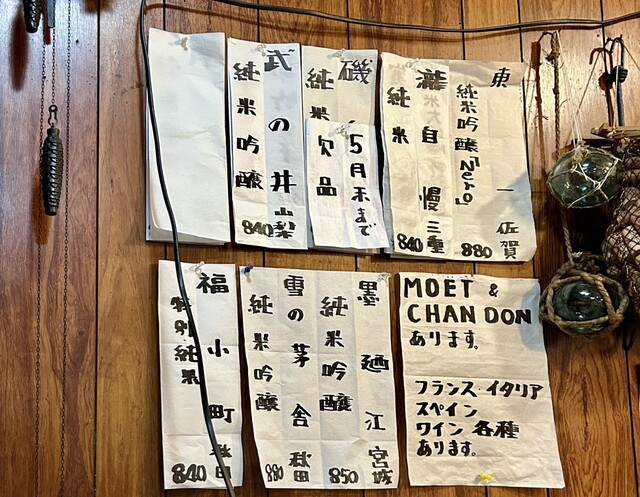 東一 佐賀
純米吟醸「Nero」
880
瀧自慢 三重
純米
840
磯
純米
5月末まで
欠品
武の井 山梨
純米吟醸
840
MOET &
CHANDON
あります。
フランス・イタリア
スペイン
ワイン各種
あります。
墨廼江 宮城
純米吟醸
850
雪の茅舎 秋田
純米吟醸
880
福小町 秋田
特別純米
840